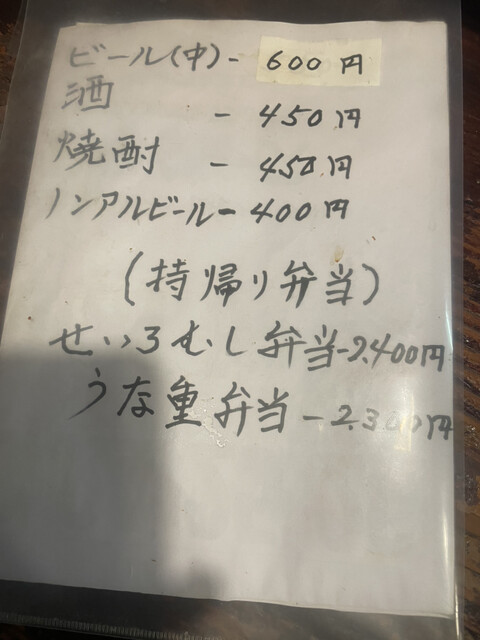 ビール(中)- 600円
酒 - 450円
焼酎 - 450円
ノンアルビール - 400円
(持帰り弁当)
せいろむし弁当-2.400円
うな重弁当-2.300円